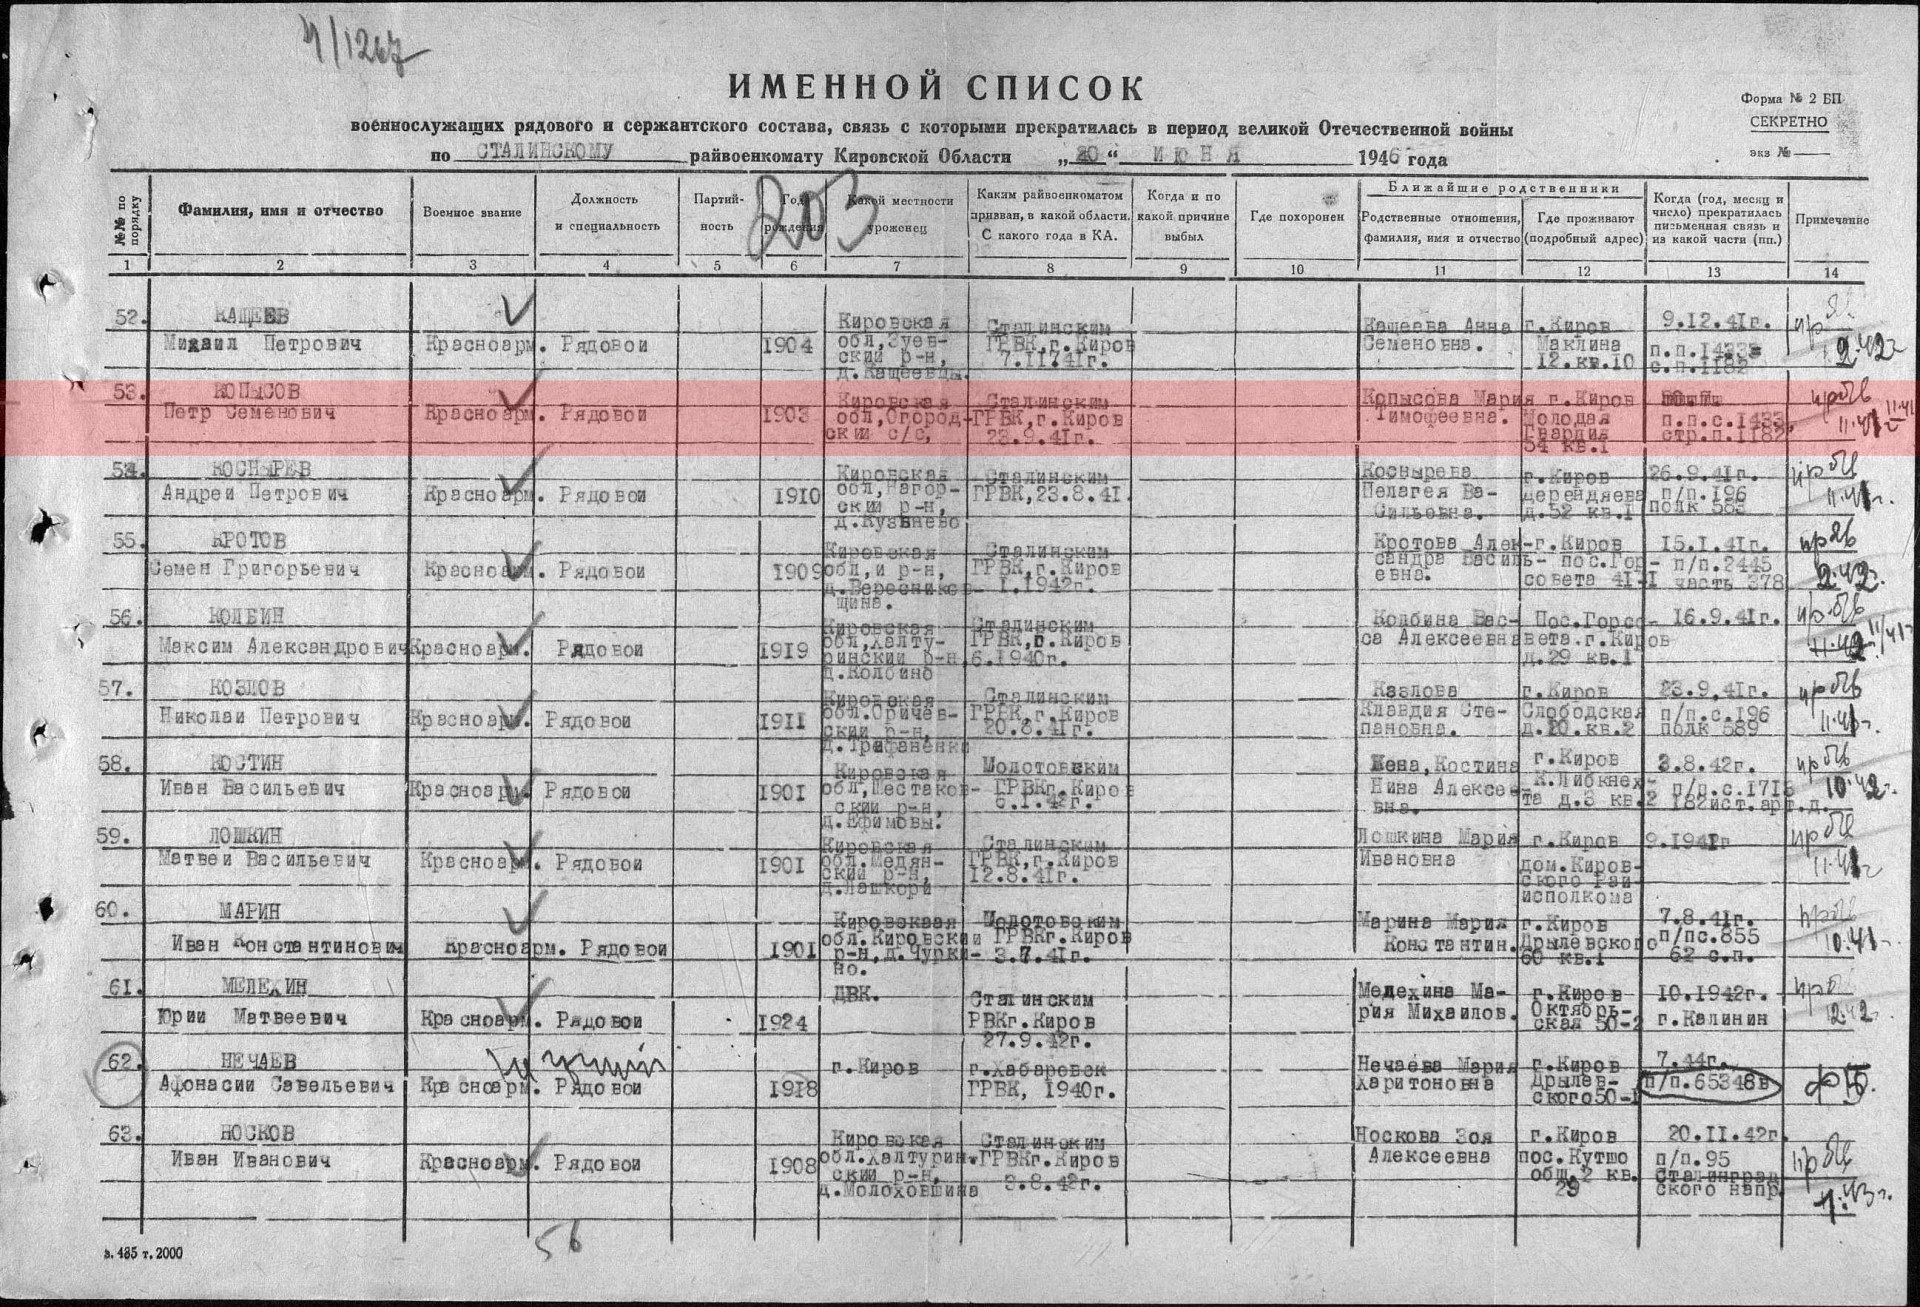 4/1267
ИМЕННОЙ СПИСОК
Форма № 2 БП
СЕКРЕТНО
экз №
военнослужащих рядового и сержантского состава, связь с которыми прекратилась в период великой Отечественной войны
по СТАЛИНСКОМУ райвоенкомату Кировской Области „20“ ИЮНЯ 1946 года
203
№№ по порядку
Фамилия, имя и отчество
Военное звание
Должность и специальность
Партий-ность
Год рождения
Какой местности уроженец
Каким райвоенкоматом призван, в какой области. С какого года в КА.
Когда и по какой причине выбыл
Где похоронен
Ближайшие родственники
Родственные отношения, фамилия, имя и отчество
Где проживают (подробный адрес)
Когда (год, месяц и число) прекратилась письменная связь и из какой части (пп.)
Примечание
1 2 3 4 5 6 7 8 9 10 11 12 13 14
52. КАЩЕЕВ Михаил Петрович Красноарм. Рядовой 1904 Кировская обл, Зуев-ский р-н, д.Кащеевцы. Сталинским ГРВК, г.Киров 7.II.41г. Кащеева Анна Семеновна. г.Киров Маклина 12.кв.10 9.12.41г. с.п.1182 2.42г
53. КОПЫСОВ Петр Семенович Красноарм. Рядовой 1903 Кировская обл, Огород-ский с/с, Сталинским ГРВК, г.Киров 23.9.41г. Копысова Мария Тимофеевна. г.Киров Молодая Гвардия 54 кв.1 п.п.с.1433, стр.п.1182 11.41
54. КОСНЫРЕВ Андрей Петрович Красноарм. Рядовой 1910 Кировская обл, Нагор-ский р-н, д.Кузьнево Сталинским ГРВК, 23.8.41. Коснырева Пелагея Ва-сильевна. г.Киров дерендяева д.52 кв.1 26.9.41г. п/п.196 полк 583 11.41г.
55. КРОТОВ Семен Григорьевич Красноарм. Рядовой 1909 Кировская обл, и р-н, д.Вересников-щина. Сталинским ГРВК, г.Киров 1.1942г. Кротова Алек-сандра Василь-евна. г.Киров пос.Гор-совета 41-1 15.1.41г. п/п.2445 часть 378 2.42г.
56. КОЛБИН Максим Александрович Красноарм. Рядовой 1919 Кировская обл, Халту-ринский р-н, д.Колбино Сталинским ГРВК, г.Киров 6.1940г. Колбина Вас-са Алексеевна Пос.Горсо-вета.г.Киров д.29 кв.1 16.9.41г. 11/41г
57. КОЗЛОВ Николай Петрович Красноарм. Рядовой 1911 Кировская обл.Оричев-ский р-н, д.Трифаненки Сталинским ГРВК, г.Киров 20.8.41г. Казлова Клавдия Сте-пановна. г.Киров Слободская д.20.кв.2 23.9.41г. п/п.с.196 полк 589 11.41г.
58. КОСТИН Иван Васильевич Красноарм. Рядовой 1901 Кировская обл, Шестаков-ский р-н, д.Ефимовы. Молотовским ГРВКг.Киров 6.1.42г. Жена, Костина Нина Алексее-вна. г.Киров К.Либкнех-та д.3 кв.2 3.8.42г. п/п.с.1713 182ист.арт.д. 10.42г.
59. ЛОШКИН Матвей Васильевич Красноарм. Рядовой 1901 Кировская обл.Медян-ский р-н, д.Лашкори Сталинским ГРВК, г.Киров 12.8.41г. Лошкина Мария Ивановна г.Киров дом.Киров-ского Рай-исполкома 9.1941г 11.41г
60. МАРИН Иван Константинович Красноарм. Рядовой 1901 Кировсказя обл.Кировский р-н, д.Чурки-но. Молотовским ГРВКг.Киров 3.7.41г. Марина Мария Константин. г.Киров Дрылевского 60 кв.1 7.8.41г. п/пс.855 62 с.п. 10.41г.
61. МЕЛЕХИН Юрий Матвеевич Красноарм. Рядовой 1924 ДВК. Сталинским РВКг.Киров 27.9.42г. Мелехина Ма-рия Михайлов. г.Киров Октябрь-ская 50-2 10.1942г. г.Калинин 12.42г.
62. НЕЧАЕВ Афонасий Савельевич Красноарм. Рядовой 1918 г.Киров г.Хабаровск ГРВК, 1940г. Нечаева Мария Харитоновна г.Киров Дрылев-ского50-1 7.44г. п/п.65348в
63. НОСКОВ Иван Иванович Красноарм. Рядовой 1908 Кировская обл.Халтурин-ский р-н, д.Молоховщина Сталинским ГРВКг.Киров 3.8.42г. Носкова Зоя Алексеевна г.Киров пос.Кутшо общ,2 кв. 29 20.II.42г. п/п.95 Сталинград ского напр. 1.43г.
56
з. 485 т. 2000